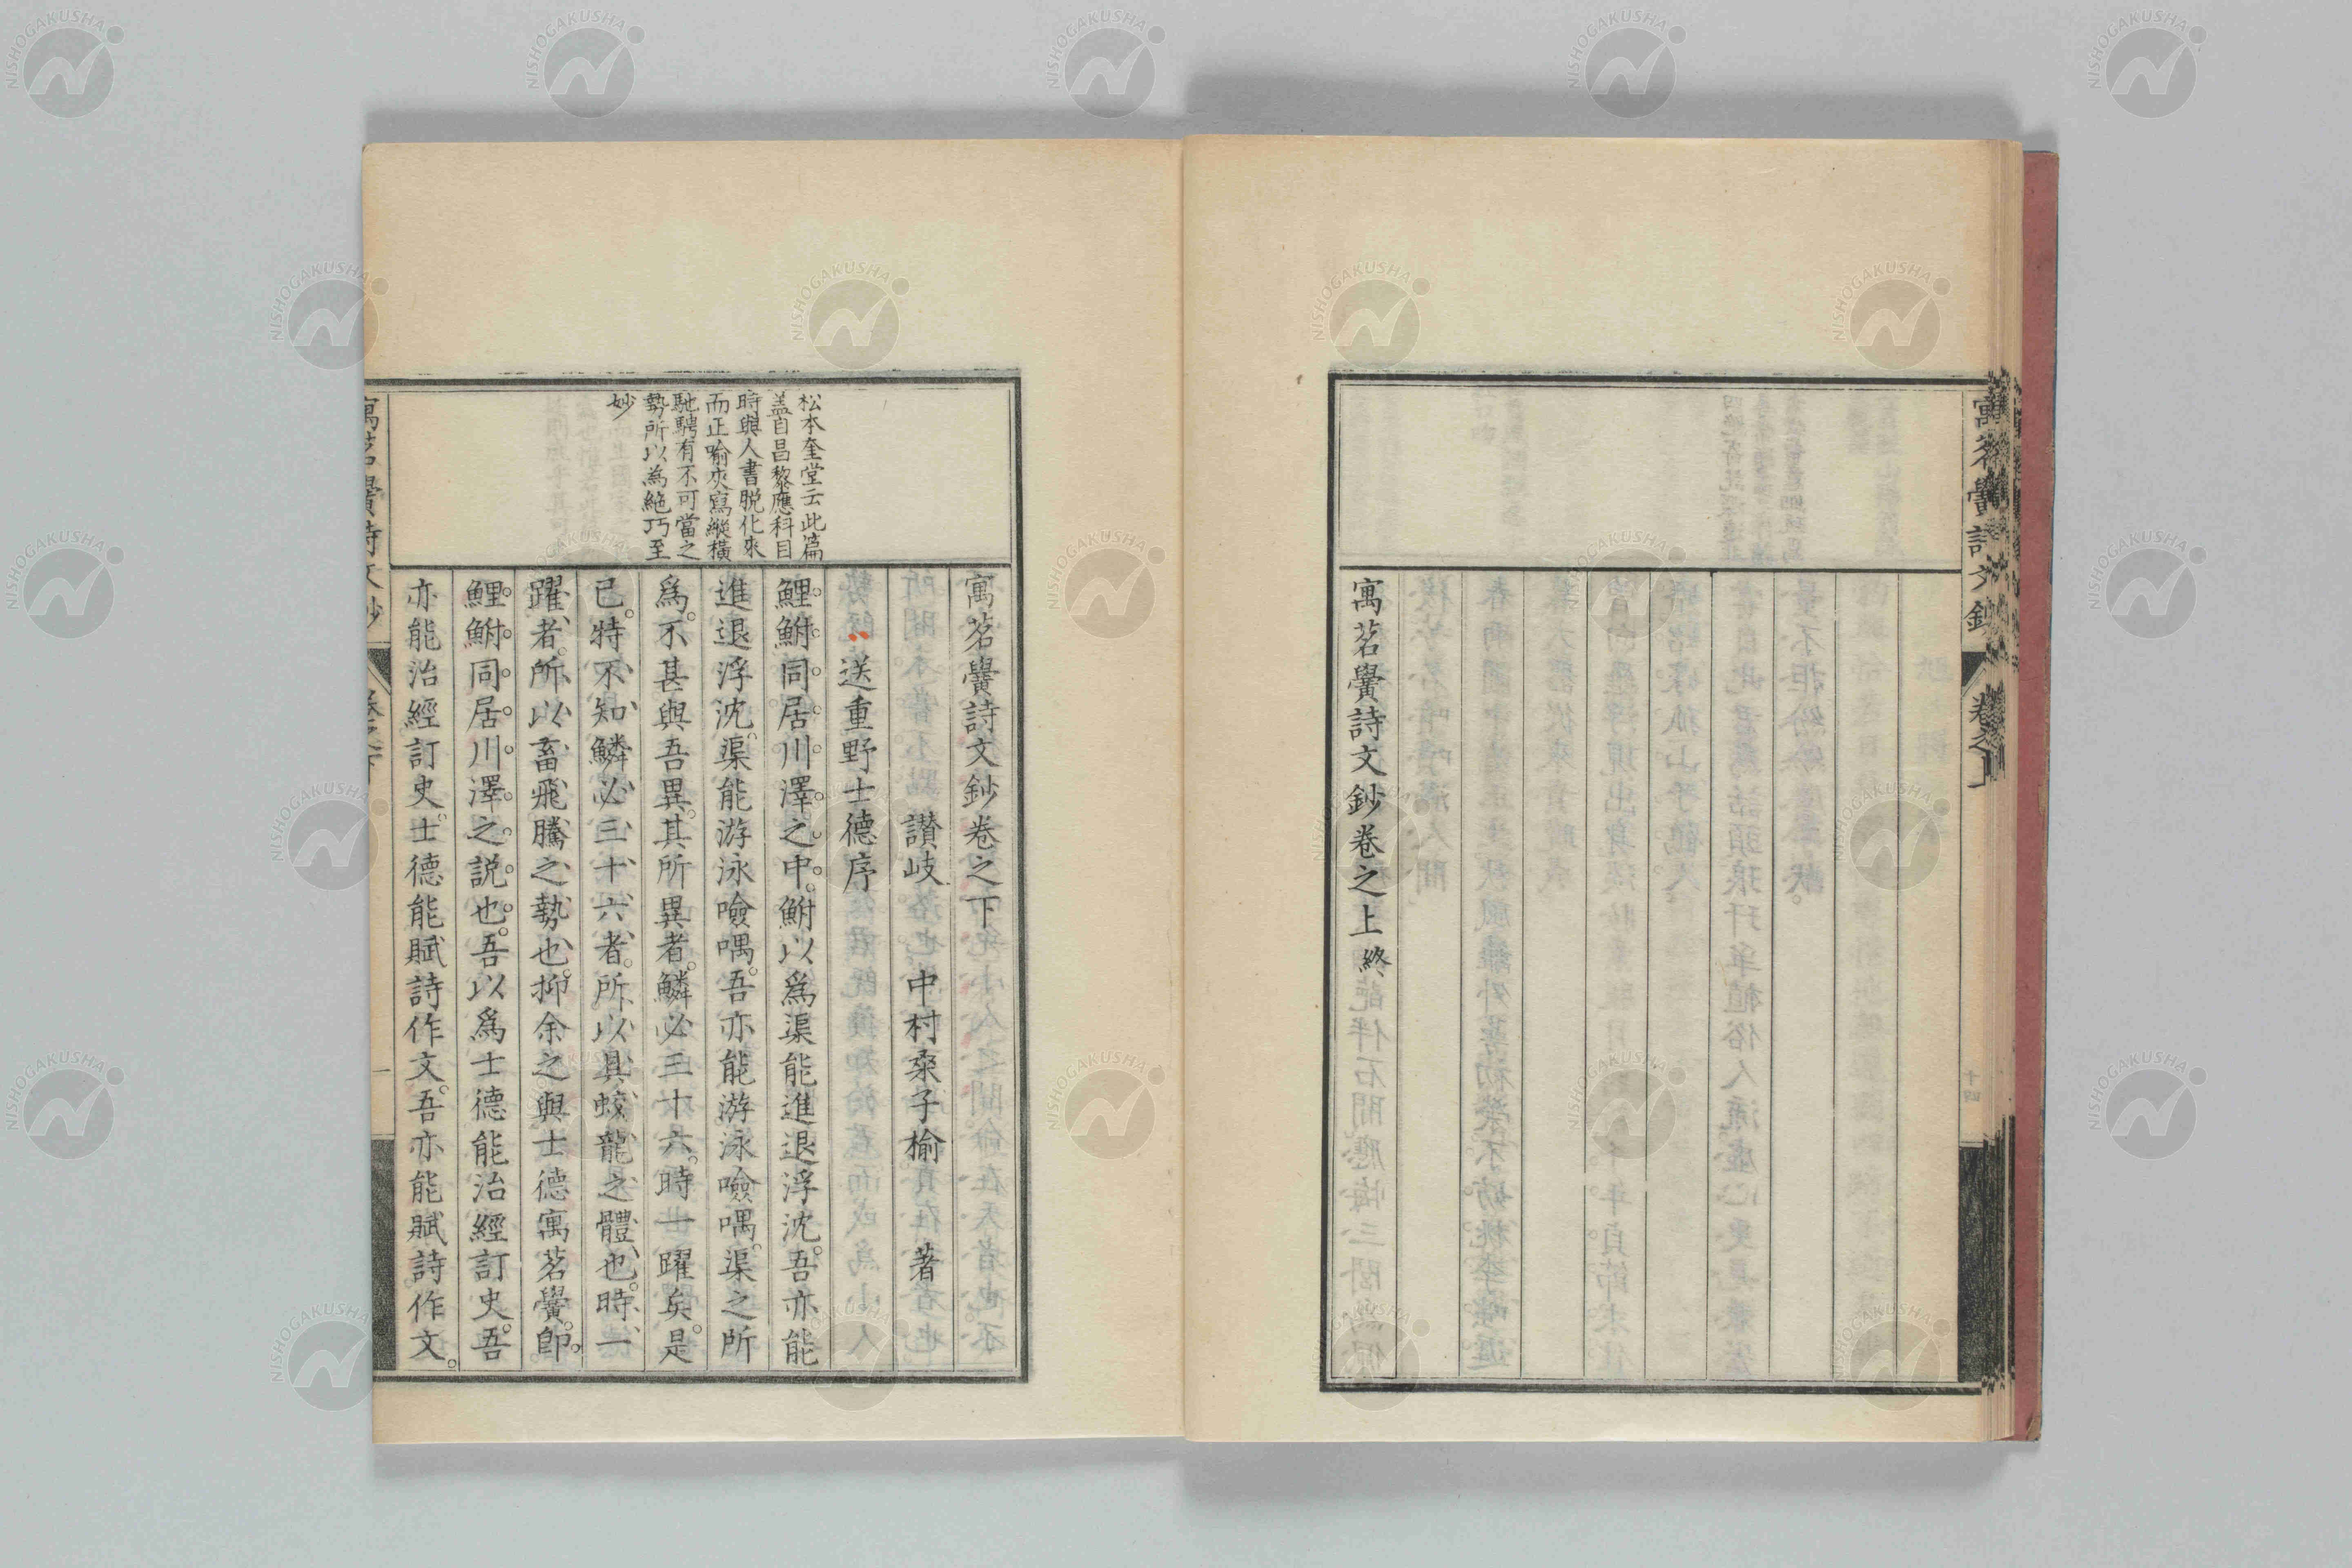 寓茗黌詩文鈔
卷之上
寓茗黌詩文鈔卷之上終
寓茗黌詩文鈔卷之下
讃岐　中村㮈子榆　著
送重野士德序
鯉鮒同居川澤之中。鮒以爲渠能進退浮沈。吾亦能
進退浮沈。渠能游泳噞喁。吾亦能游泳噞喁。渠之所
爲。不甚與吾異。其所異者。鱗必三十六。時一躍矣。是
已。特不知鱗必三十六者。所以具蛟龍之體也。時一
躍者。所以畜飛騰之勢也。抑余之與士德寓茗黌。卽
鯉鮒同居川澤之説也。吾以爲士德能治經訂史。吾
亦能治經訂史。士德能賦詩作文。吾亦能賦詩作文。
松本奎堂云此篇
盖自昌黎應科目
時與人書脱化來
而正喻夾寫縱橫
馳騁有不可當之
勢所以為絶巧至
妙
寓茗黌詩文鈔
卷之下
一
NISHOGAKUSHA